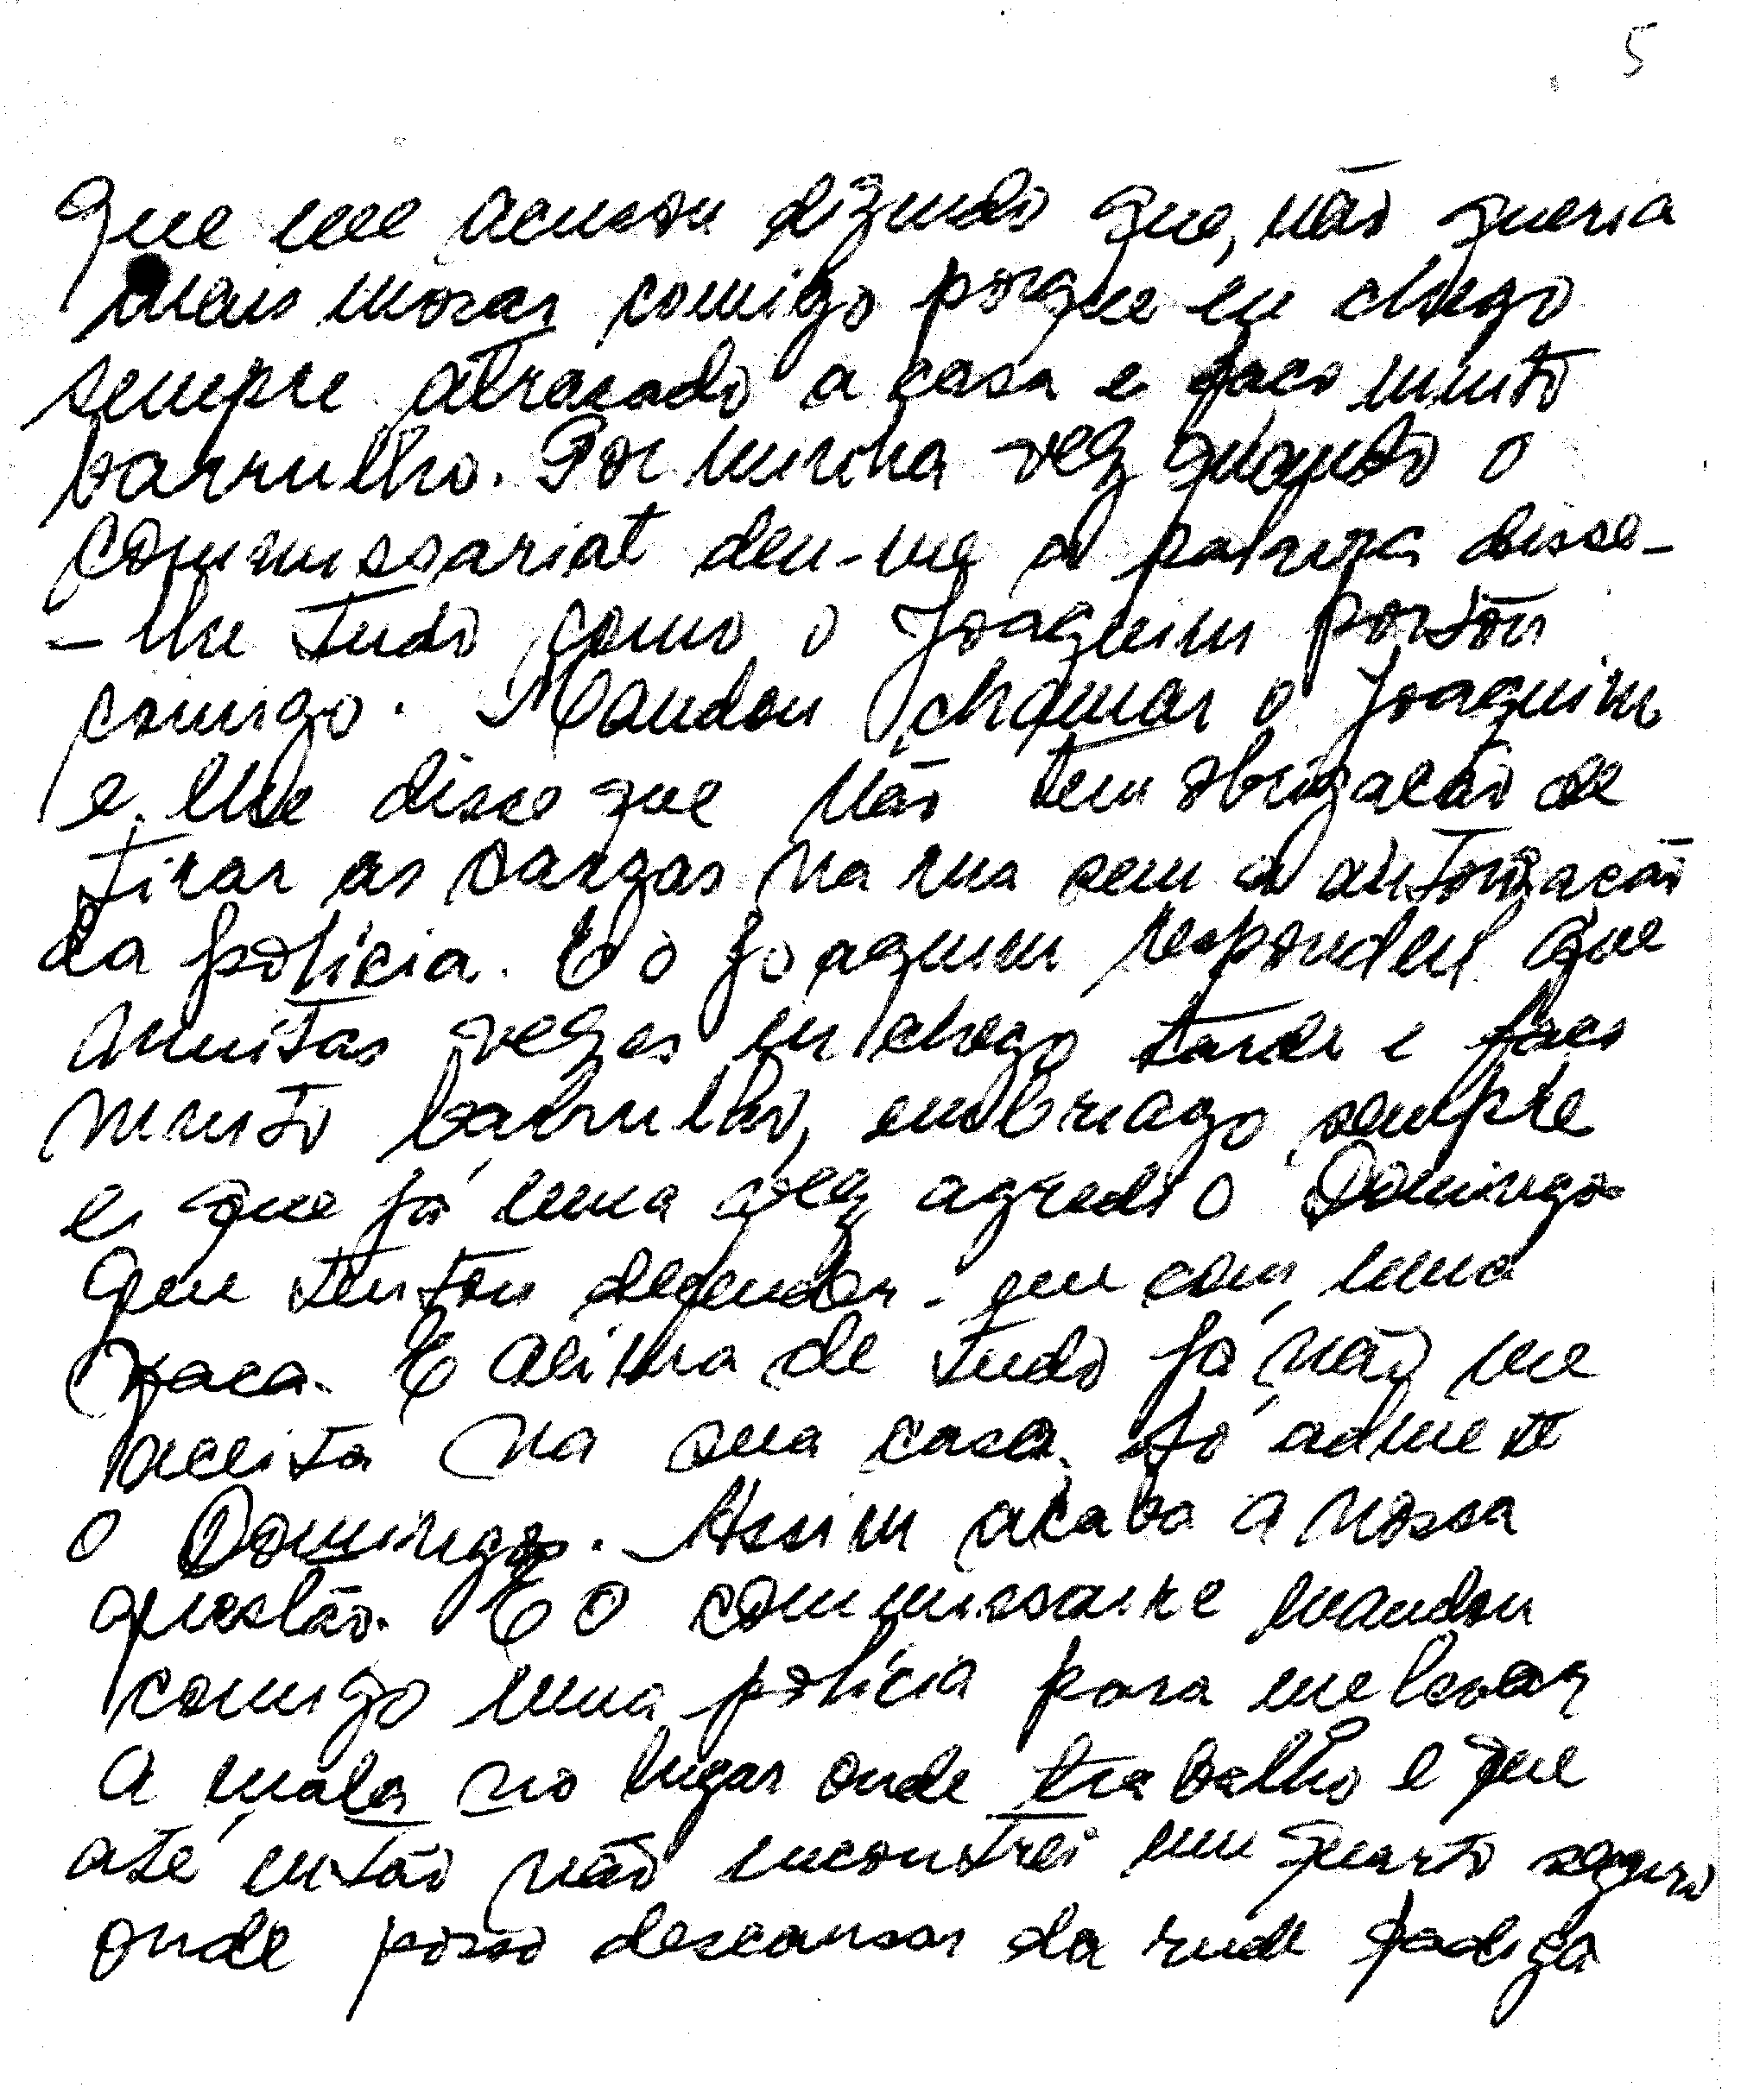 5
que me acusou dizendo que, não queria
mais morar comigo porque eu chego
sempre atrasado a casa e faco muito
barrulho. Por minha vez quando o
commissariat deu-me a palavra disse-
-lhe tudo como o Joaquim portou
comigo. Mandou chamar o Joaquim
e lhe disse que não tem obrigacão de
tirar as bargas na rua sem a autorizacão
da policia. E o Joaquim respondeu que
muitas vezes eu chego tarde e faco
muito barrulho, embriago sempre
e que já uma vez agredi o Domingos
que tentou defender-me com uma
faca. E acima de tudo já não me
aceita na sua casa. Só admete
o Domingos. Assim acaba a nossa
questão. E o commissaire mandou
comigo uma polícia para me levar
a mala no lugar onde trabalho e que
até então não encontrei um quarto seguro
onde posso descansar da rude fadiga